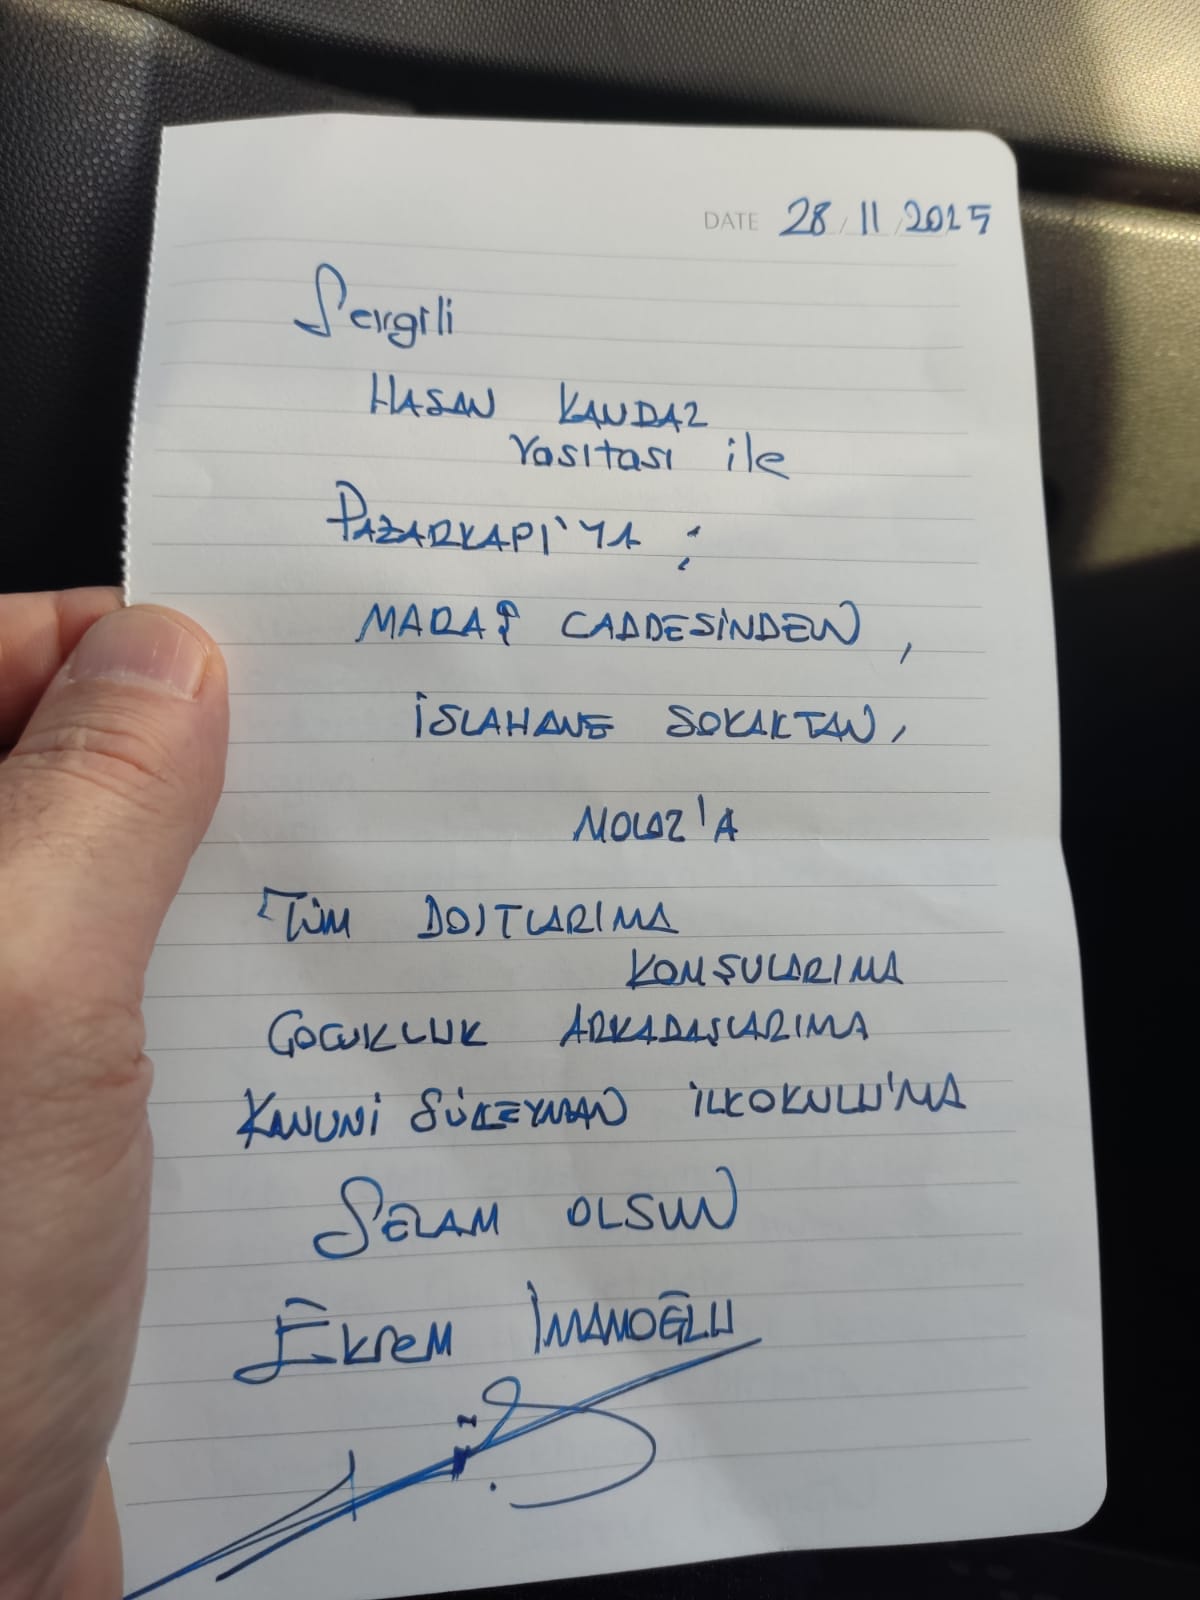 DATE 28/11/2025
Sevgili
HASAN KANDAZ
Vasıtası ile
PAZARKAPI'YA ;
MARAŞ CADDESİNDEN,
İSLAHANE SOKAKTAN,
MOLOZ'A
TÜM DOSTLARIMA
KOMŞULARIMA
ÇOCUKLUK ARKADAŞLARIMA
KANUNİ SÜLEYMAN İLKOKULU'MA
SELAM OLSUN
EKREM İMAMOĞLU